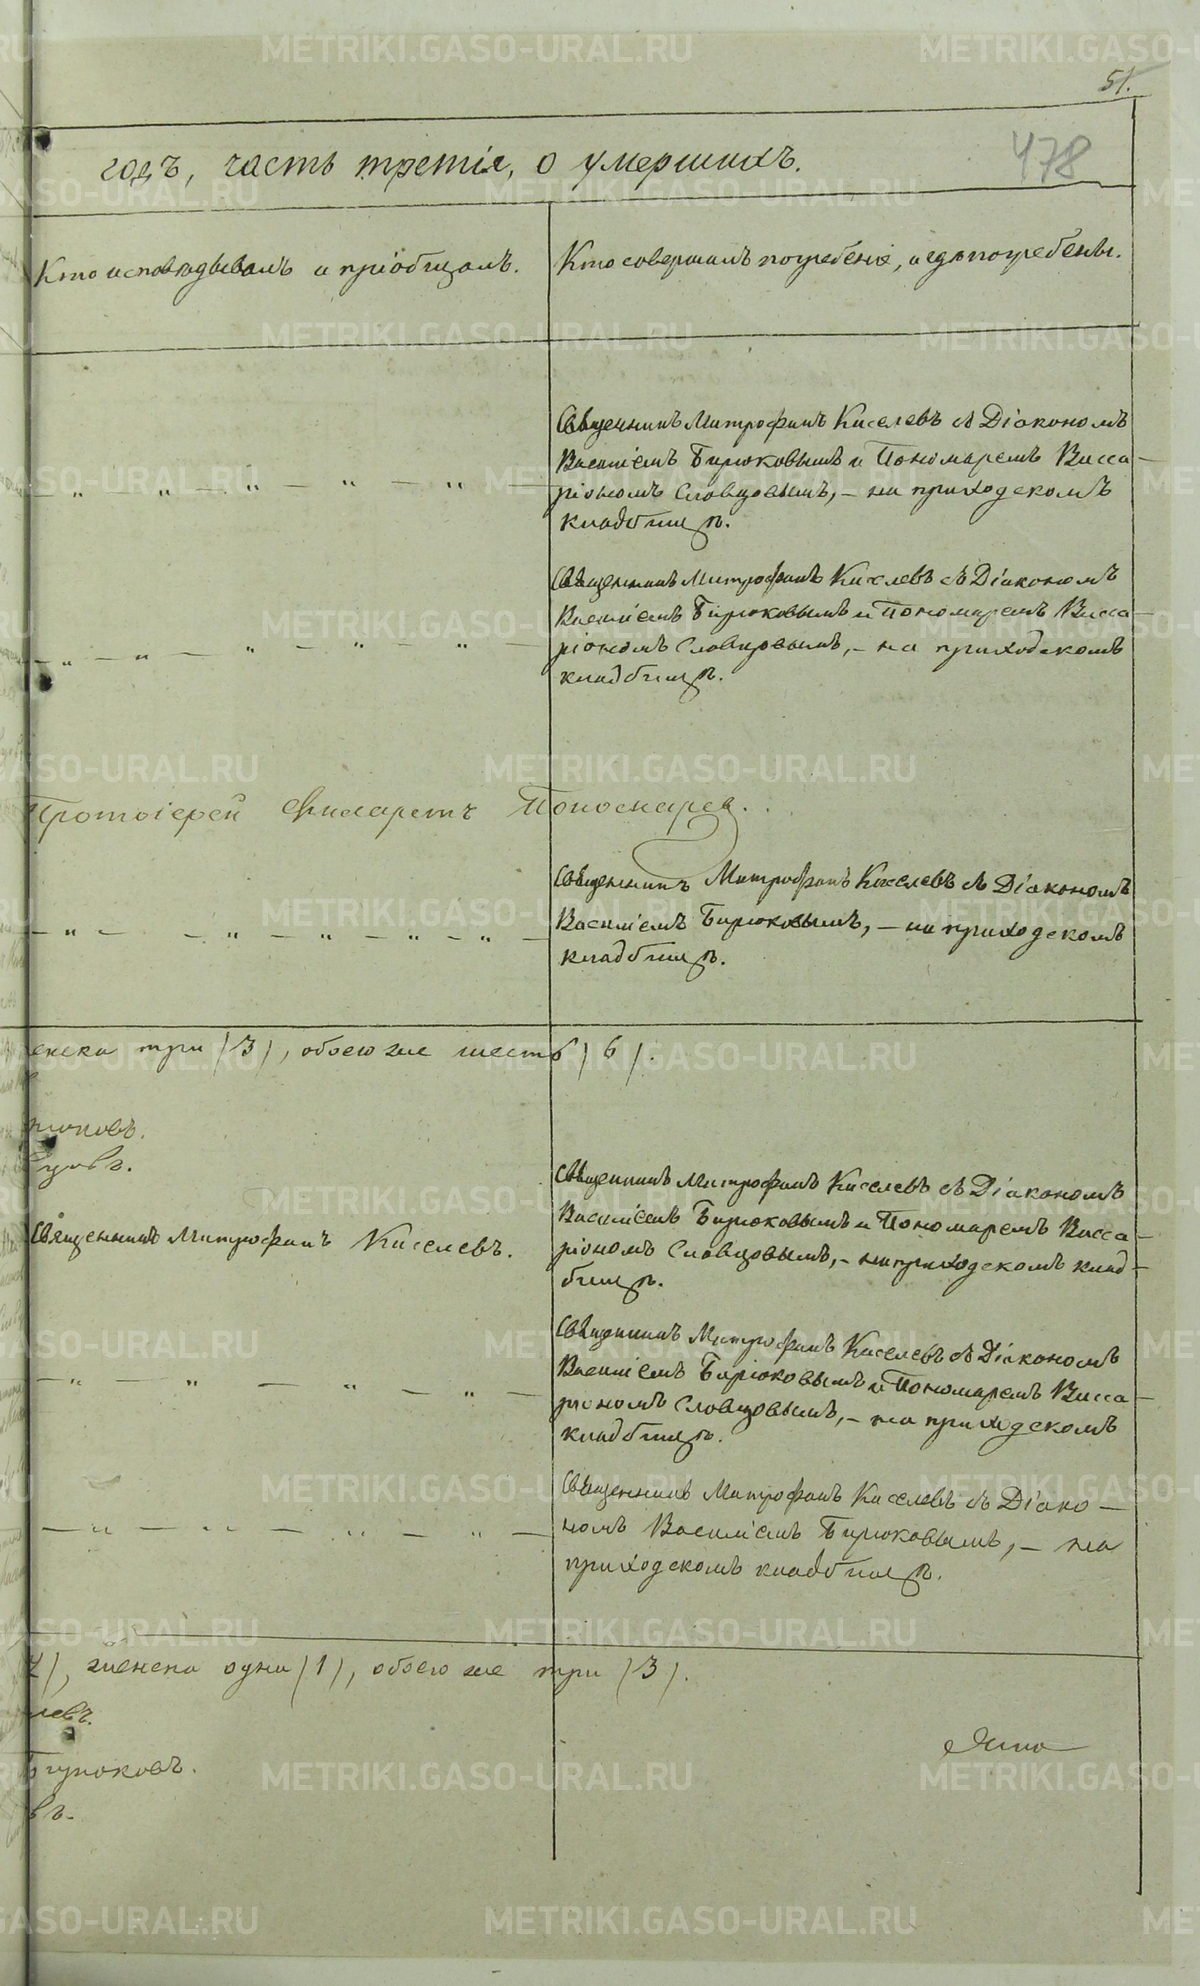 51.
478
годъ, часть третія, о умершихъ.
Кто исповѣдывалъ и пріобщалъ.
Кто совершалъ погребеніе, и гдѣ погребены.
Священникъ Митрофанъ Киселевъ съ Діакономъ
Василіемъ Бирюковымъ и Пономаремъ Висса-
ріономъ Словцовымъ, - на приходскомъ
кладбищѣ.
Священникъ Митрофанъ Киселевъ съ Діакономъ
Василіемъ Бирюковымъ и Пономаремъ Висса-
ріономъ Словцовымъ, - на приходскомъ
кладбищѣ.
Протоіерей Филаретъ Поносцарев.
Священникъ Митрофанъ Киселевъ съ Діакономъ
Василіемъ Бирюковымъ, - на приходскомъ
кладбищѣ.
женска три (3), обоего же шесть (6).
рюковъ.
Священникъ Митрофанъ Киселевъ.
Священникъ Митрофанъ Киселевъ съ Діакономъ
Василіемъ Бирюковымъ и Пономаремъ Висса-
ріономъ Словцовымъ, - на приходскомъ клад-
бищѣ.
Священникъ Митрофанъ Киселевъ съ Діакономъ
Василіемъ Бирюковымъ и Пономаремъ Висса-
ріономъ Словцовымъ, - на приходскомъ
кладбищѣ.
Священникъ Митрофанъ Киселевъ съ Діако-
номъ Василіемъ Бирюковымъ, - на
приходскомъ кладбищѣ.
2), женска одна (1), обоего же три (3).
левъ.
Бирюковъ.
въ.
METRIKI.GASO-URAL.RU